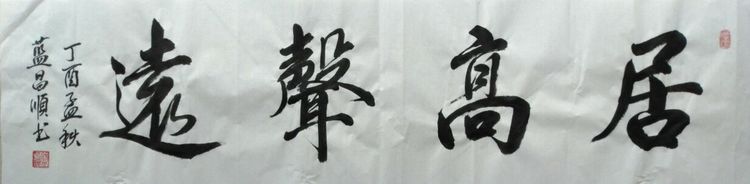 居高聲遠
丁酉孟秋
藍昌順书